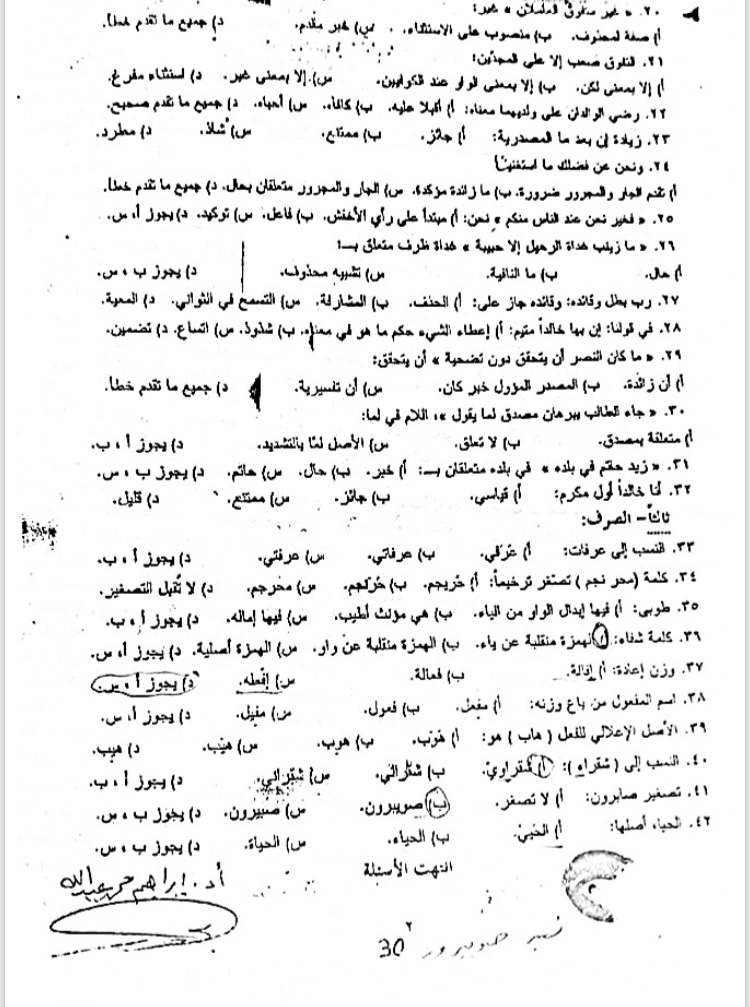 ٢٠. « غير متفوق المهملان » غير:
أ) صفة لمحذوف. ب) منصوب على الاستثناء. س) خبر مقدم. د) جميع ما تقدم خطأ.
٢١. التفوق صعب إلا على المجدّين:
أ) إلا بمعنى لكن. ب) إلا بمعنى الواو عند الكوفيين. س) إلا بمعنى غير. د) استثناء مفرغ.
٢٢. رضي الوالدان على ولديهما معناه: أ) أقبلا عليه. ب) كافأه. س) أحباه. د) جميع ما تقدم صحيح.
٢٣. زيادة إن بعد ما المصدرية: أ) جائز. ب) ممتنع. س) شاذ. د) مطرد.
٢٤. ونحن عن فضلك ما استغنينا
أ) تقدم الجار والمجرور ضرورة. ب) ما زائدة مؤكدة. س) الجار والمجرور متعلقان بحال. د) جميع ما تقدم خطأ.
٢٥. « فخير نحن عند الناس منكم » نحن: أ) مبتدأ على رأي الأخفش. ب) فاعل. س) توكيد. د) يجوز أ، س.
٢٦. « ما زينب غداة الرحيل إلا حبيبة » غداة ظرف متعلق بـ:
أ) حال. ب) ما النافية. س) تشبيه محذوف. د) يجوز ب ، س.
٢٧. رب بطل وقائده: وقائده جاز على: أ) الحذف. ب) المشارفة. س) التسمح في الثواني. د) المعية.
٢٨. في قولنا: إن بها خالداً متيم: أ) إعطاء الشيء حكم ما هو في معناه. ب) شذوذ. س) اتساع. د) تضمين.
٢٩. « ما كان النصر أن يتحقق دون تضحية » أن يتحقق:
أ) أن زائدة. ب) المصدر المؤول خبر كان. س) أن تفسيرية. د) جميع ما تقدم خطأ.
٣٠. « جاء الطالب ببرهان مصدق لما يقول »، اللام في لما:
أ) متعلقة بمصدق. ب) لا تعلق. س) الأصل لمّا بالتشديد. د) يجوز أ ، ب.
٣١. « زيد حاتم في بلده » في بلده متعلقان بـ: أ) خبر. ب) حال. س) حاتم. د) يجوز ب ، س.
٣٢. أنا خالداً أول مكرم: أ) قياسي. ب) جائز. س) ممتنع. د) قليل.
ثالثاً- الصرف:
٣٣. النسب إلى عرفات: أ) عَرَفي. ب) عرفاتي. س) عرفتي. د) يجوز أ ، ب.
٣٤. كلمة (محر نجم ) تصغر ترخيماً: أ) حُريجم. ب) حُرَنجم. س) محرجم. د) لا تقبل التصغير.
٣٥. طوبى: أ) فيها إبدال الواو من الياء. ب) هي مؤنث أطيب. س) فيها إماله. د) يجوز أ ، ب.
٣٦. كلمة شفاء: أ) الهمزة منقلبة عن ياء. ب) الهمزة منقلبة عن واو. س) الهمزة أصلية. د) يجوز أ، س.
٣٧. وزن إعادة: أ) إفالة. ب) فعالة. س) إفعله. د) يجوز أ ، س.
٣٨. اسم المفعول من باع وزنه: أ) مفعل. ب) فعول. س) مفيل. د) يجوز أ، س.
٣٩. الأصل الإعلالي للفعل ( هاب ) هو: أ) هَوَب. ب) هوب. س) هيَب. د) هيب.
٤٠. النسب إلى ( شقراء ): أ) شقراويّ. ب) شقرائي. س) شقراني. د) يجوز أ ، ب.
٤١. تصغير صابرون: أ) لا تصغر. ب) صويبرون. س) صبيرون. د) يجوز ب ، س.
٤٢. الحياء أصلها: أ) الحَيَيُ. ب) الحياء. س) الحياة. د) يجوز ب ، س.
انتهت الأسئلة
أ.د. إبراهيم محمد عبدالله
٢
30